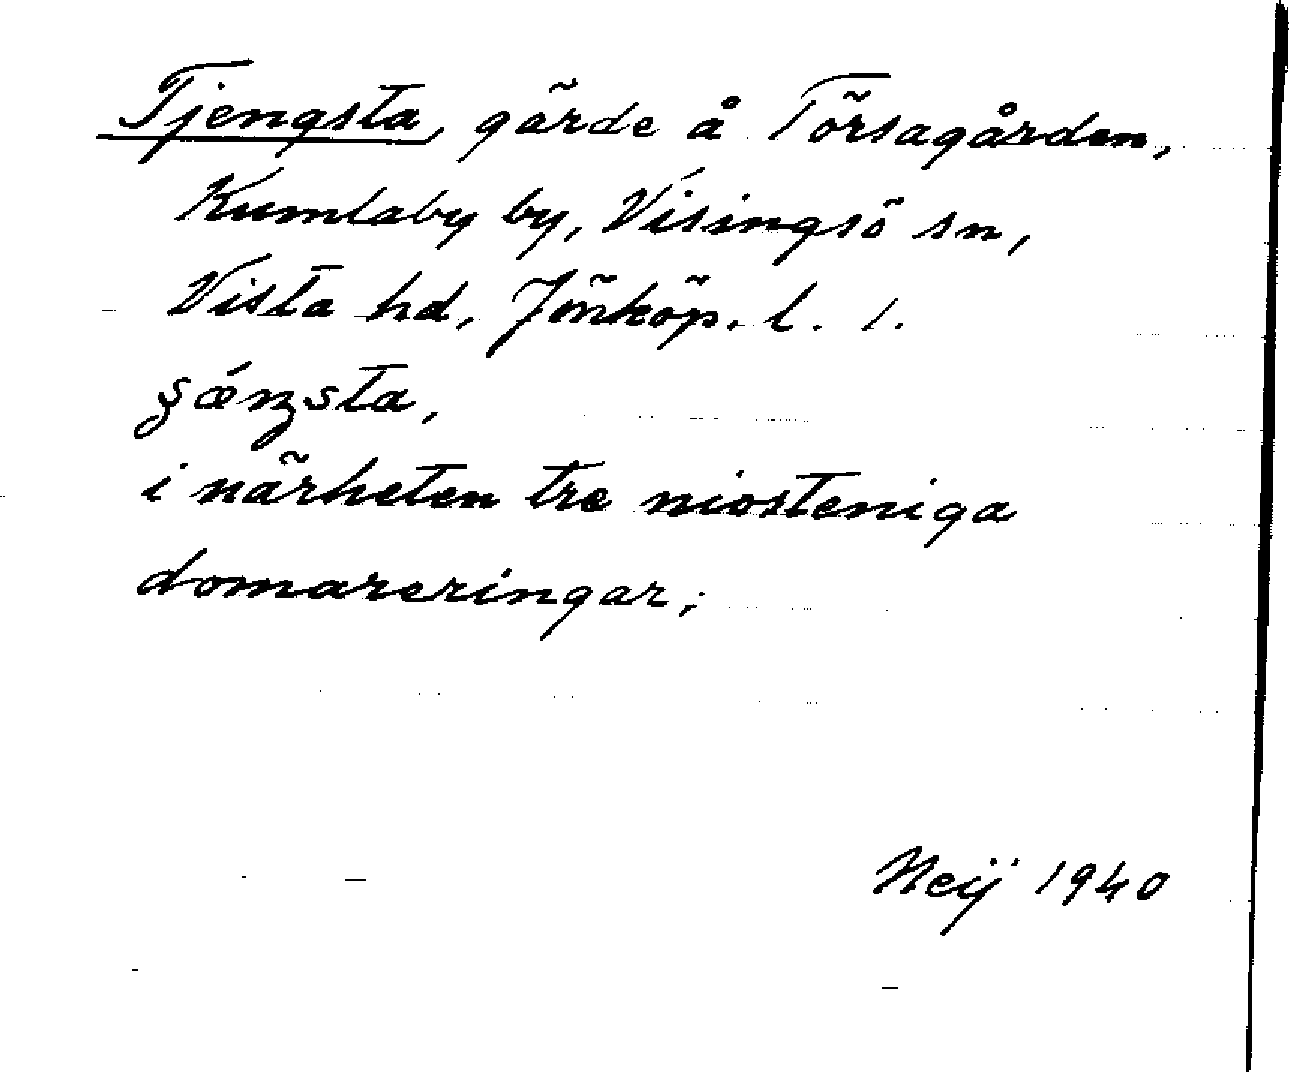 Tjengsta, gärde å Törsagården,
Kumlaby by, Visingsö sn,
Vista hd, Jönköp. l. 1.
i närheten tre niosteniga
domareringar;
Neij 1940